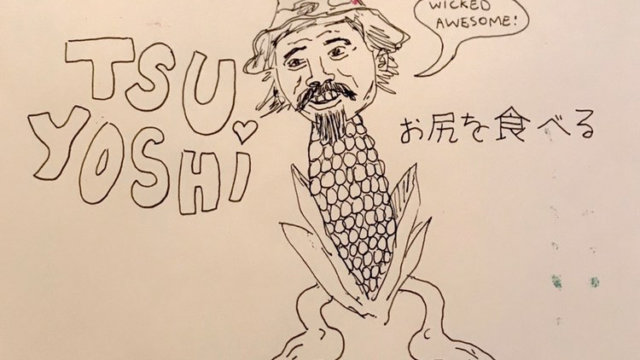 TSU
YOSHi
WICKED
AWESOME!
お尻を食べる